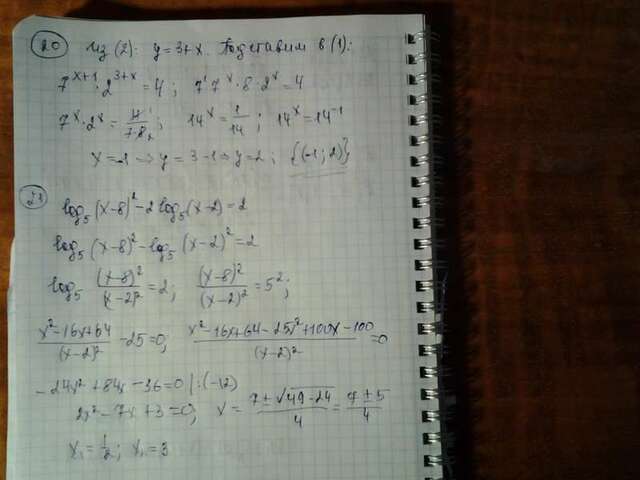 20 Из (2): y=3+x. Подставим в (1):
7^(x+1)·2^(3+x)=4; 7^1·7^x·8·2^x=4
7^x·2^x=4/(7·8); 14^x=1/14; 14^x=14^(-1)
x=-1 → y=3-1 → y=2; {(-1; 2)}
23
log₅(x-8)²-2log₅(x-2)=2
log₅(x-8)²-log₅(x-2)²=2
log₅ (x-8)²/(x-2)²=2; (x-8)²/(x-2)²=5²;
(x²-16x+64)/(x-2)² -25=0; (x²-16x+64-25x²+100x-100)/(x-2)²=0
-24x²+84x-36=0 |:(-12)
2x²-7x+3=0; x=(7±√(49-24))/4=(7±5)/4
x₁=1/2; x₁=3